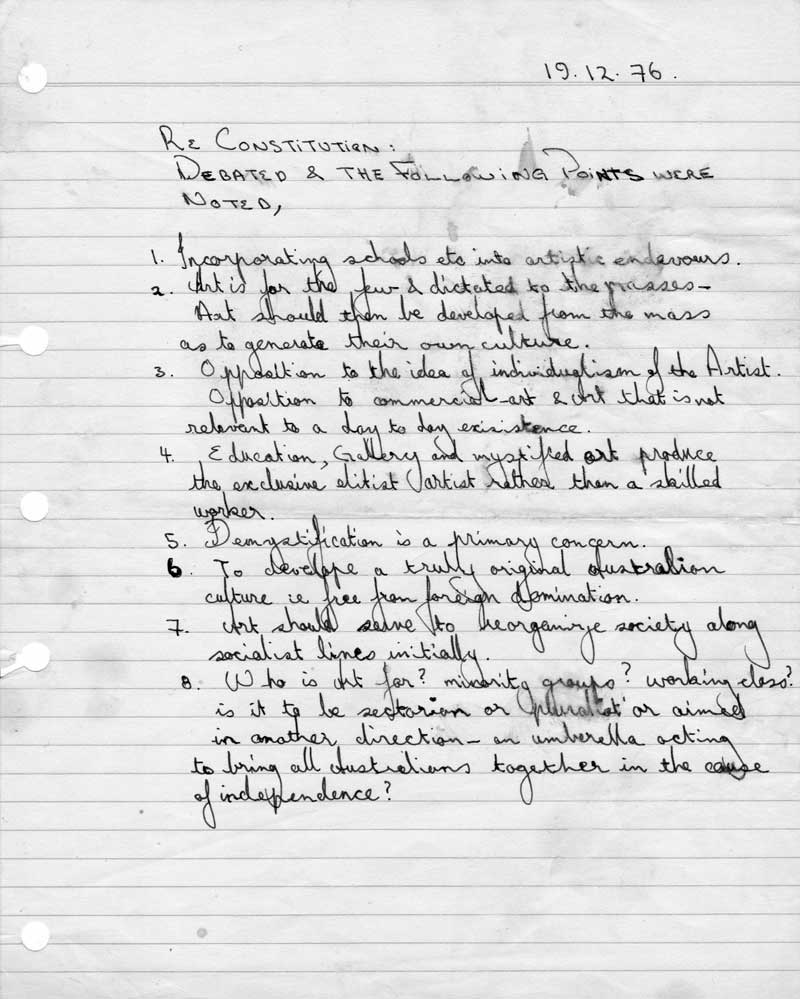 19.12.76.
RE CONSTITUTION:
DEBATED & THE FOLLOWING POINTS WERE
NOTED,
1. Incorporating schools etc into artistic endevours.
2. Art is for the few & dictated to the masses -
Art should then be developed from the mass
as to generate their own culture.
3. Opposition to the idea of individualism of the Artist.
Opposition to commercial art & Art that is not
relevant to a day to day exisistence.
4. Education, Gallery and mystified art produce
the exclusive elitist artist rather than a skilled
worker.
5. Demystification is a primary concern.
6. To develope a truly original Australian
culture ie free from foreign domination.
7. Art should serve to reorganize society along
socialist lines initially.
8. Who is Art for? minority groups? working class?
is it to be sectarian or 'pluralist' or aimed
in another direction - an umbrella acting
to bring all Australians together in the cause
of independence?